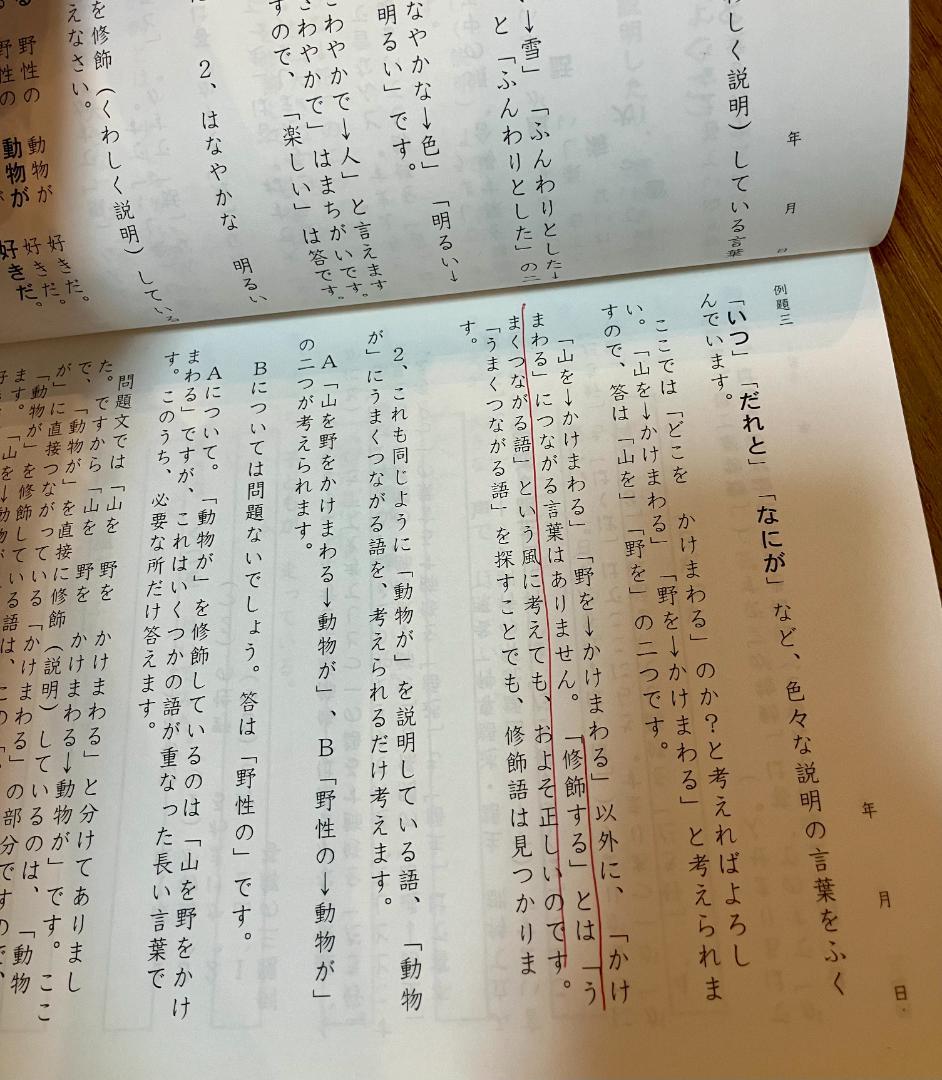 わしく説明)している言葉
年 月 日
→雪」 「ふんわりとした→
と 「ふんわりとした」の二
なやかな→色」 「明るい→
明るい」です。
こわやかで→人」 と言えます
さわやかで」はまちがいです。
すので、「楽しい」 は答です。
2、はなやかな 明るい
を修飾(くわしく説明)している
えなさい。
野性の 動物が 好きだ。
野性の 動物が 好きだ。
動物が 好きだ。
例題三
年 月 日
「いつ」「だれと」「なにが」など、色々な説明の言葉をふく
んでいます。
ここでは「どこを かけまわる」のか?と考えればよろし
い。「山を→かけまわる」 「野を→かけまわる」と考えられま
すので、答は「山を」「野を」の二つです。
「山を→かけまわる」 「野を→かけまわる」以外に、「かけ
まわる」につながる言葉はありません。 「修飾する」とは「う
まくつながる語」という風に考えても、およそ正しいのです。
「うまくつながる語」を探すことでも、修飾語は見つかりま
す。
2、これも同じように「動物が」を説明している語、「動物
が」にうまくつながる語を、考えられるだけ考えます。
A「山を野をかけまわる→動物が」、B「野性の→動物が」
の二つが考えられます。
Bについては問題ないでしょう。答は「野性の」です。
Aについて。「動物が」を修飾しているのは「山を野をかけ
まわる」ですが、これはいくつかの語が重なった長い言葉で
す。このうち、必要な所だけ答えます。
問題文では「山を 野を かけまわる」と分けてありまし
た。ですから「山を 野を かけまわる→動物が」です。ここ
で、「動物が」を直接に修飾(説明)しているのは、「動物
が」に直接つながっている「かけまわる」の部分ですので、
「動物が」を修飾している語は、この
ます。